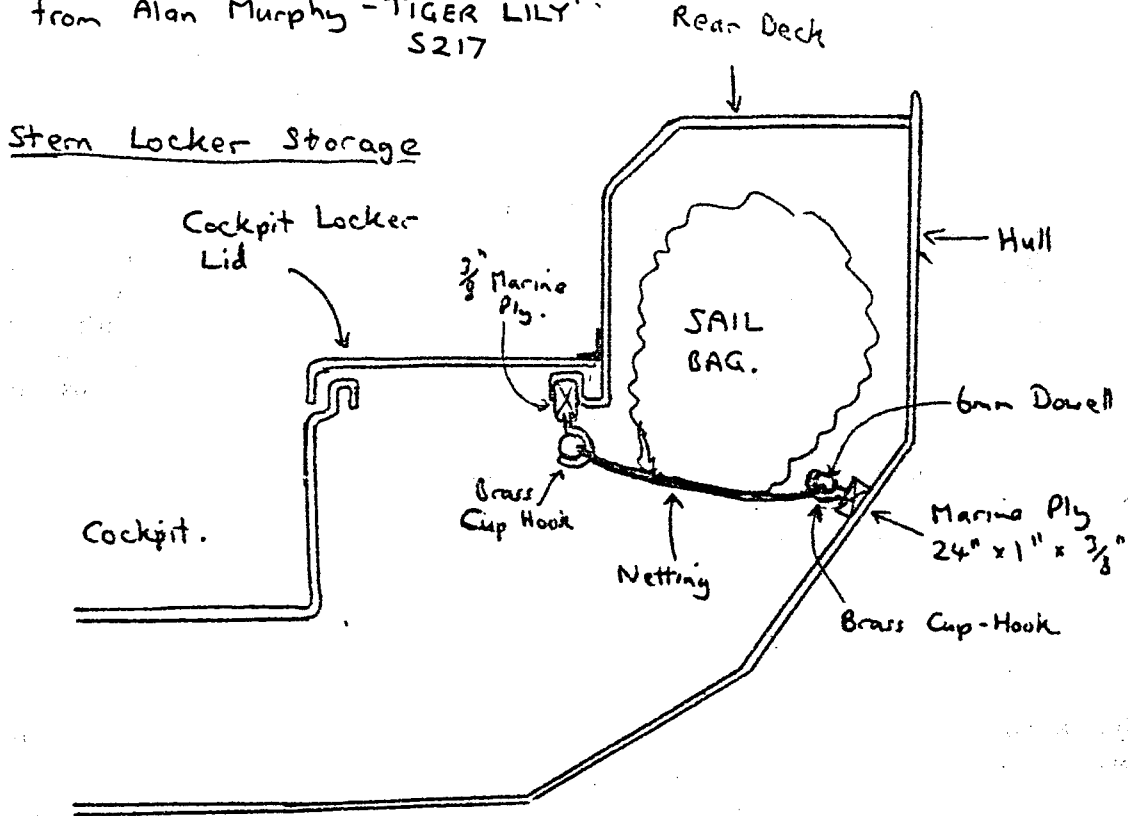 from Alan Murphy - "TIGER LILY"
S217
Rear Deck
Stern Locker Storage
Cockpit Locker
Lid
3/8" Marine
Ply.
Hull
SAIL
BAG.
6mm Dowell
Brass
Cup Hook
Cockpit.
Netting
Marine Ply
24" x 1" x 3/8"
Brass Cup-Hook